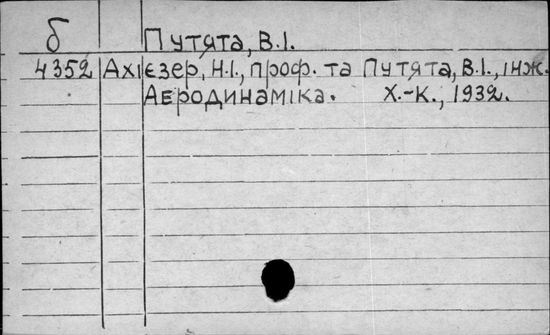 б Путята, В.І.
4352 Ахієзер, Н.І., проф. та Путята, В.І., інж.
Аеродинаміка. Х.-К., 1932.